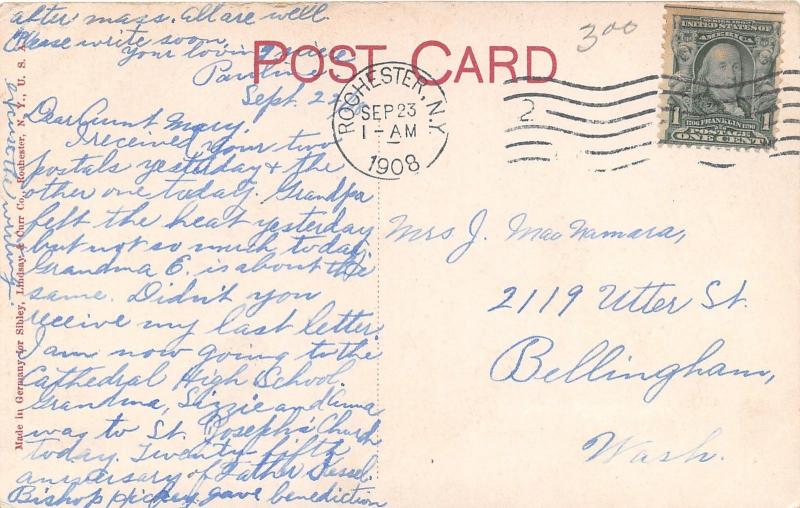 after mass. All are well.
Please write soon.
Your loving niece
Pauline
Sept. 22
POST CARD
300
SERIES 1902
UNITED STATES OF
AMERICA
1 FRANKLIN 1
1706 1790
POSTAGE
ONE CENT
ROCHESTER, N.Y.
SEP 23
1-AM
1908
2
Dear Aunt Mary.
I received your two
postals yesterday & the
other one today. Grandpa
felt the heat yesterday
but not so much today.
Grandma E. is about the
same. Didn't you
receive my last letter.
I am now going to the
Cathedral High School.
Grandma, Lizzie and Anna
was to St. Joseph's Church
today. Twenty-fifth
anniversary of Father
Bishop Hickey gave benediction
Mrs J. MacNamara,
2119 Utter St.
Bellingham,
Wash.
Made in Germany for Sibley, Lindsay & Curr Co., Rochester, N. Y., U. S. A.